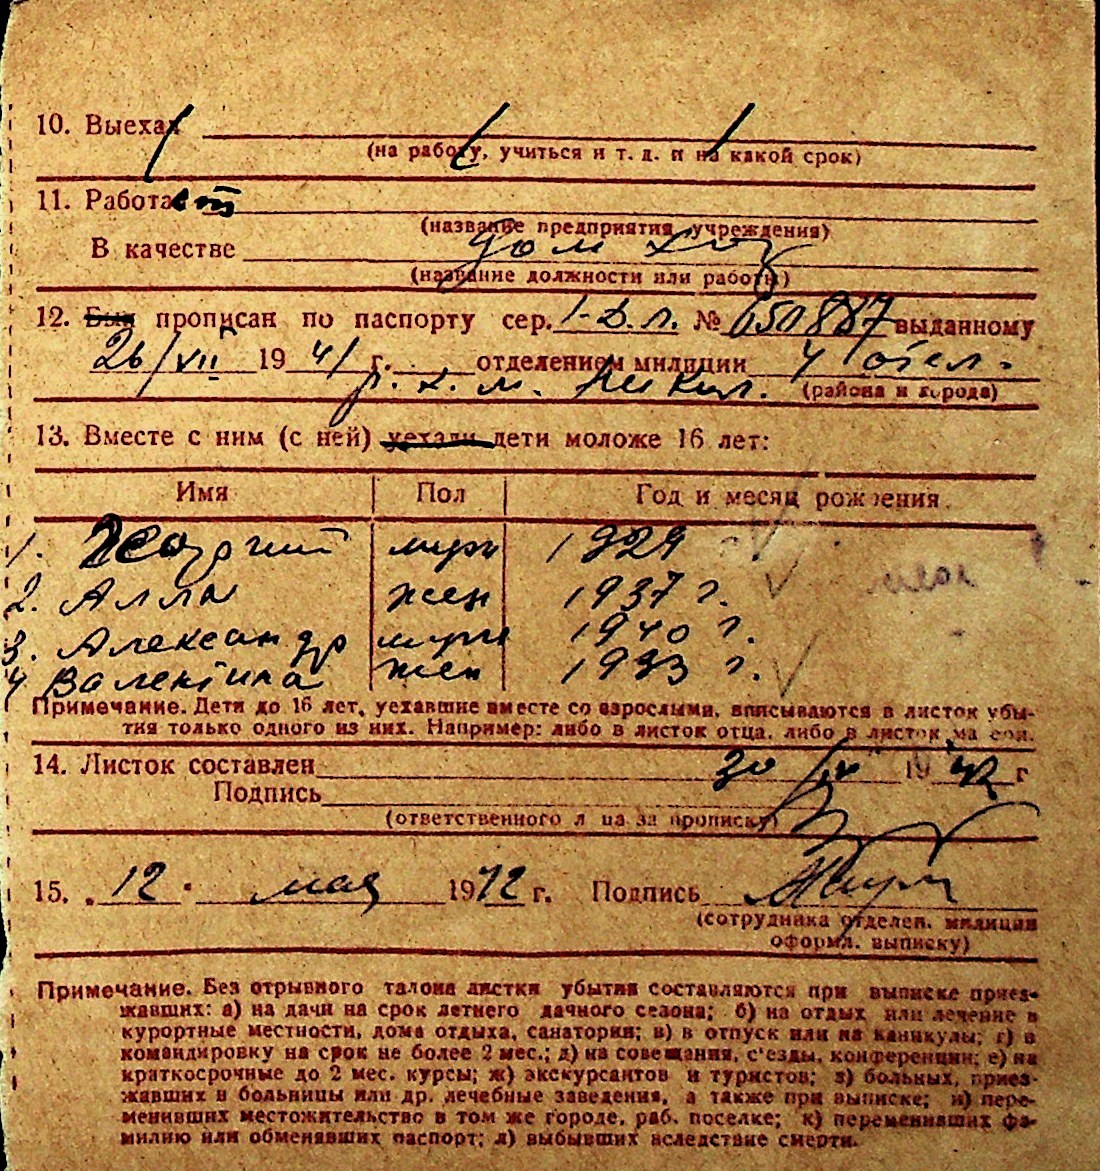 10. Выехал
(на работу, учиться и т. д. и на какой срок)
11. Работает
(название предприятия, учреждения)
В качестве дом хоз
(название должности или работы)
12. Был прописан по паспорту сер. 1-Д.Л. № 650887 выданному
26/VII 1941 г. отделением милиции 4 отел.
р. к. м.
(района и города)
13. Вместе с ним (с ней) уехали дети моложе 16 лет:
Имя Пол Год и месяц рождения
1. Георгий мужи 1929
2. Алла жен 1937 г.
3. Александр мужи 1940 г.
4 Валентина жен 1933 г.
Примечание. Дети до 16 лет, уехавшие вместе со взрослыми, вписываются в листок убы-
тия только одного из них. Например: либо в листок отца, либо в листок ма ери.
14. Листок составлен 30 19 42 г
Подпись
(ответственного л ца за прописку)
15. „12" мая 1942 г. Подпись
(сотрудника отделен. милиции
оформ. выписку)
Примечание. Без отрывного талона листки убытия составляются при выписке приез-
жавших: а) на дачи на срок летнего дачного сезона; б) на отдых или лечение в
курортные местности, дома отдыха, санатории; в) в отпуск или на каникулы; г) в
командировку на срок не более 2 мес.; д) на совещания, с'езды, конференции; е) на
краткосрочные до 2 мес. курсы; ж) экскурсантов и туристов; з) больных, приез-
жавших в больницы или др. лечебные заведения, а также при выписке; и) пере-
менивших местожительство в том же городе, раб. поселке; к) переменивших фа-
милию или обменявших паспорт; л) выбывших вследствие смерти.